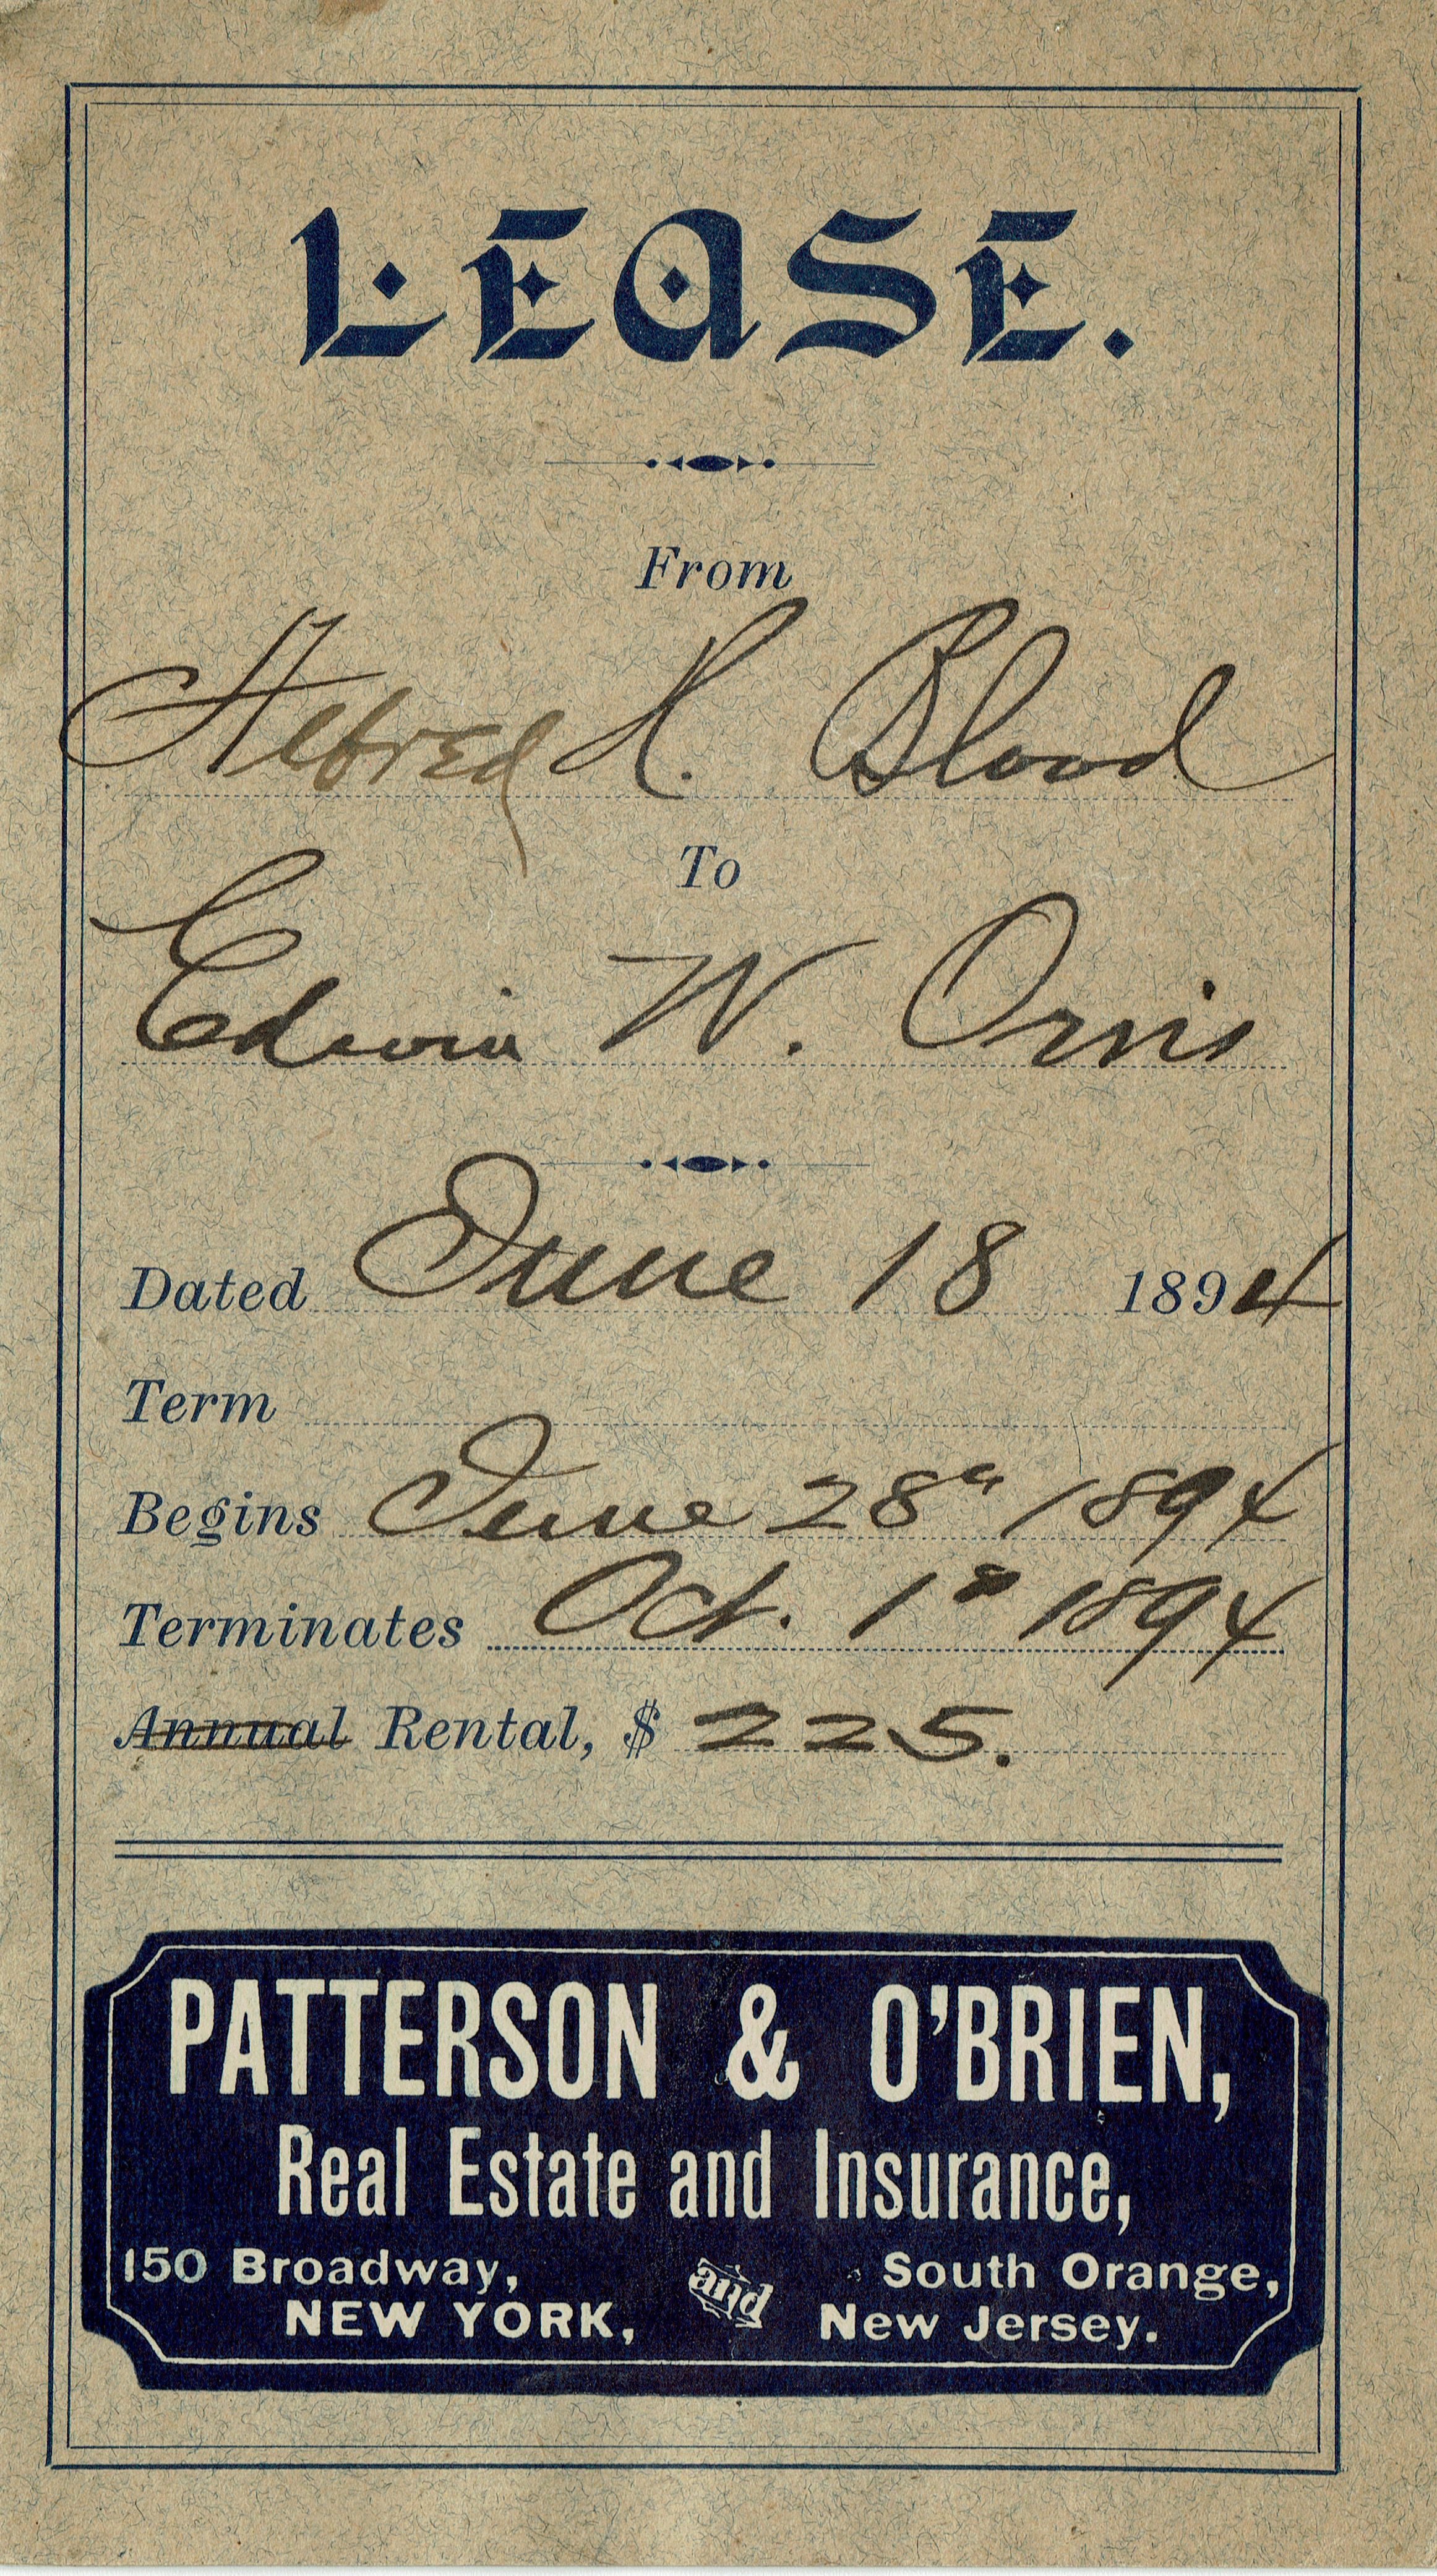 LEASE.
From
Alfred R. Blood
To
Edwin W. Orvis
Dated June 18 1894
Term
Begins June 28th 1894
Terminates Oct. 1st 1894
Annual Rental, $ 225.
PATTERSON & O'BRIEN,
Real Estate and Insurance,
150 Broadway, and South Orange,
NEW YORK, New Jersey.